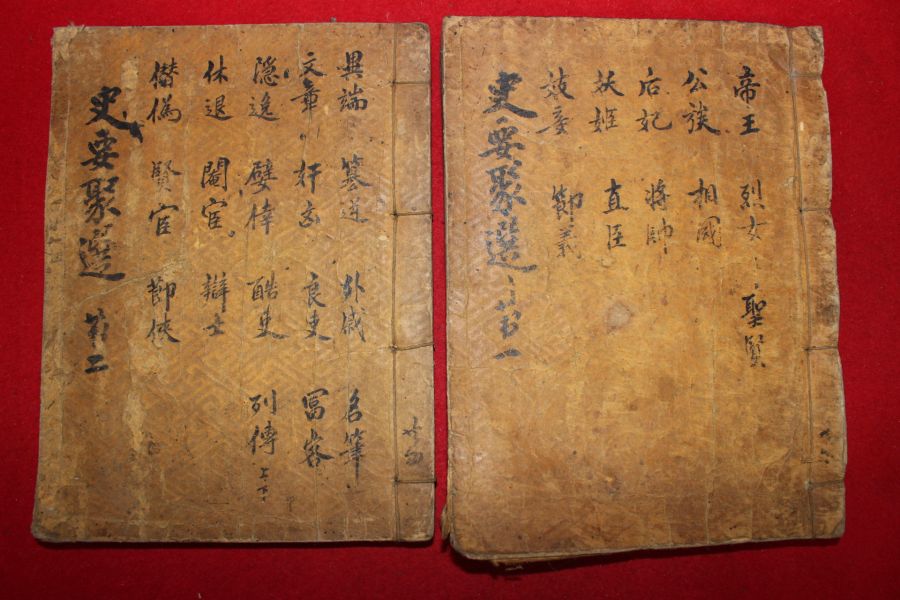 帝王 烈女 聖賢
公族 相國
后妃 將帥
妖姬 直臣
節義
史要聚選 苐一
異端 篡逆 外戚 名筆
文章 奸凶 良吏 冨客
隐逸 嬖倖 酷吏 列傳 上下
休退 閹宦 辯士
僣僞 賢宦 節俠
史要聚選 苐二